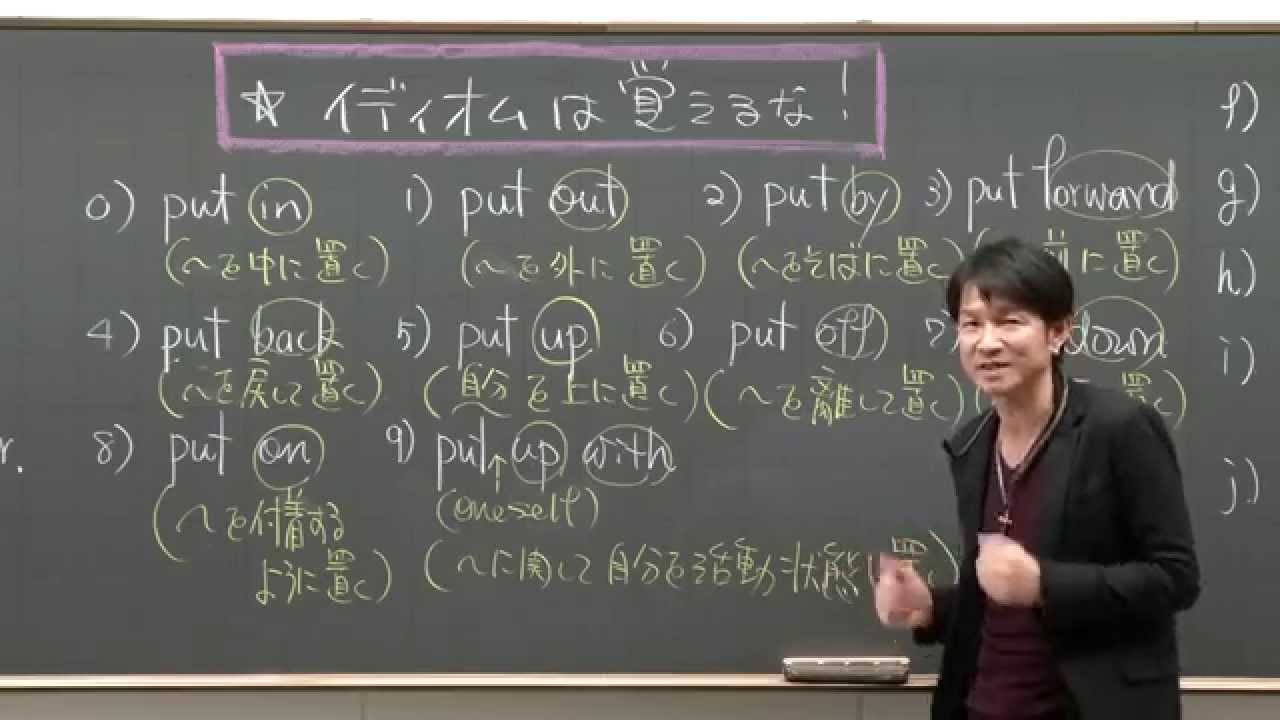 ☆ イディオムは覚えるな!
0) put in 1) put out 2) put by 3) put forward
(〜を中に置く) (〜を外に置く) (〜をそばに置く) に置く)
4) put back 5) put up 6) put off 7) down
(〜を戻して置く) (自分を上に置く) (〜を離して置く) 置く)
8) put on 9) put up with
(〜を付着する
ように置く)
↑
(oneself)
(〜に関して自分を活動状態に置く)
r.
f)
g)
h)
i)
j)